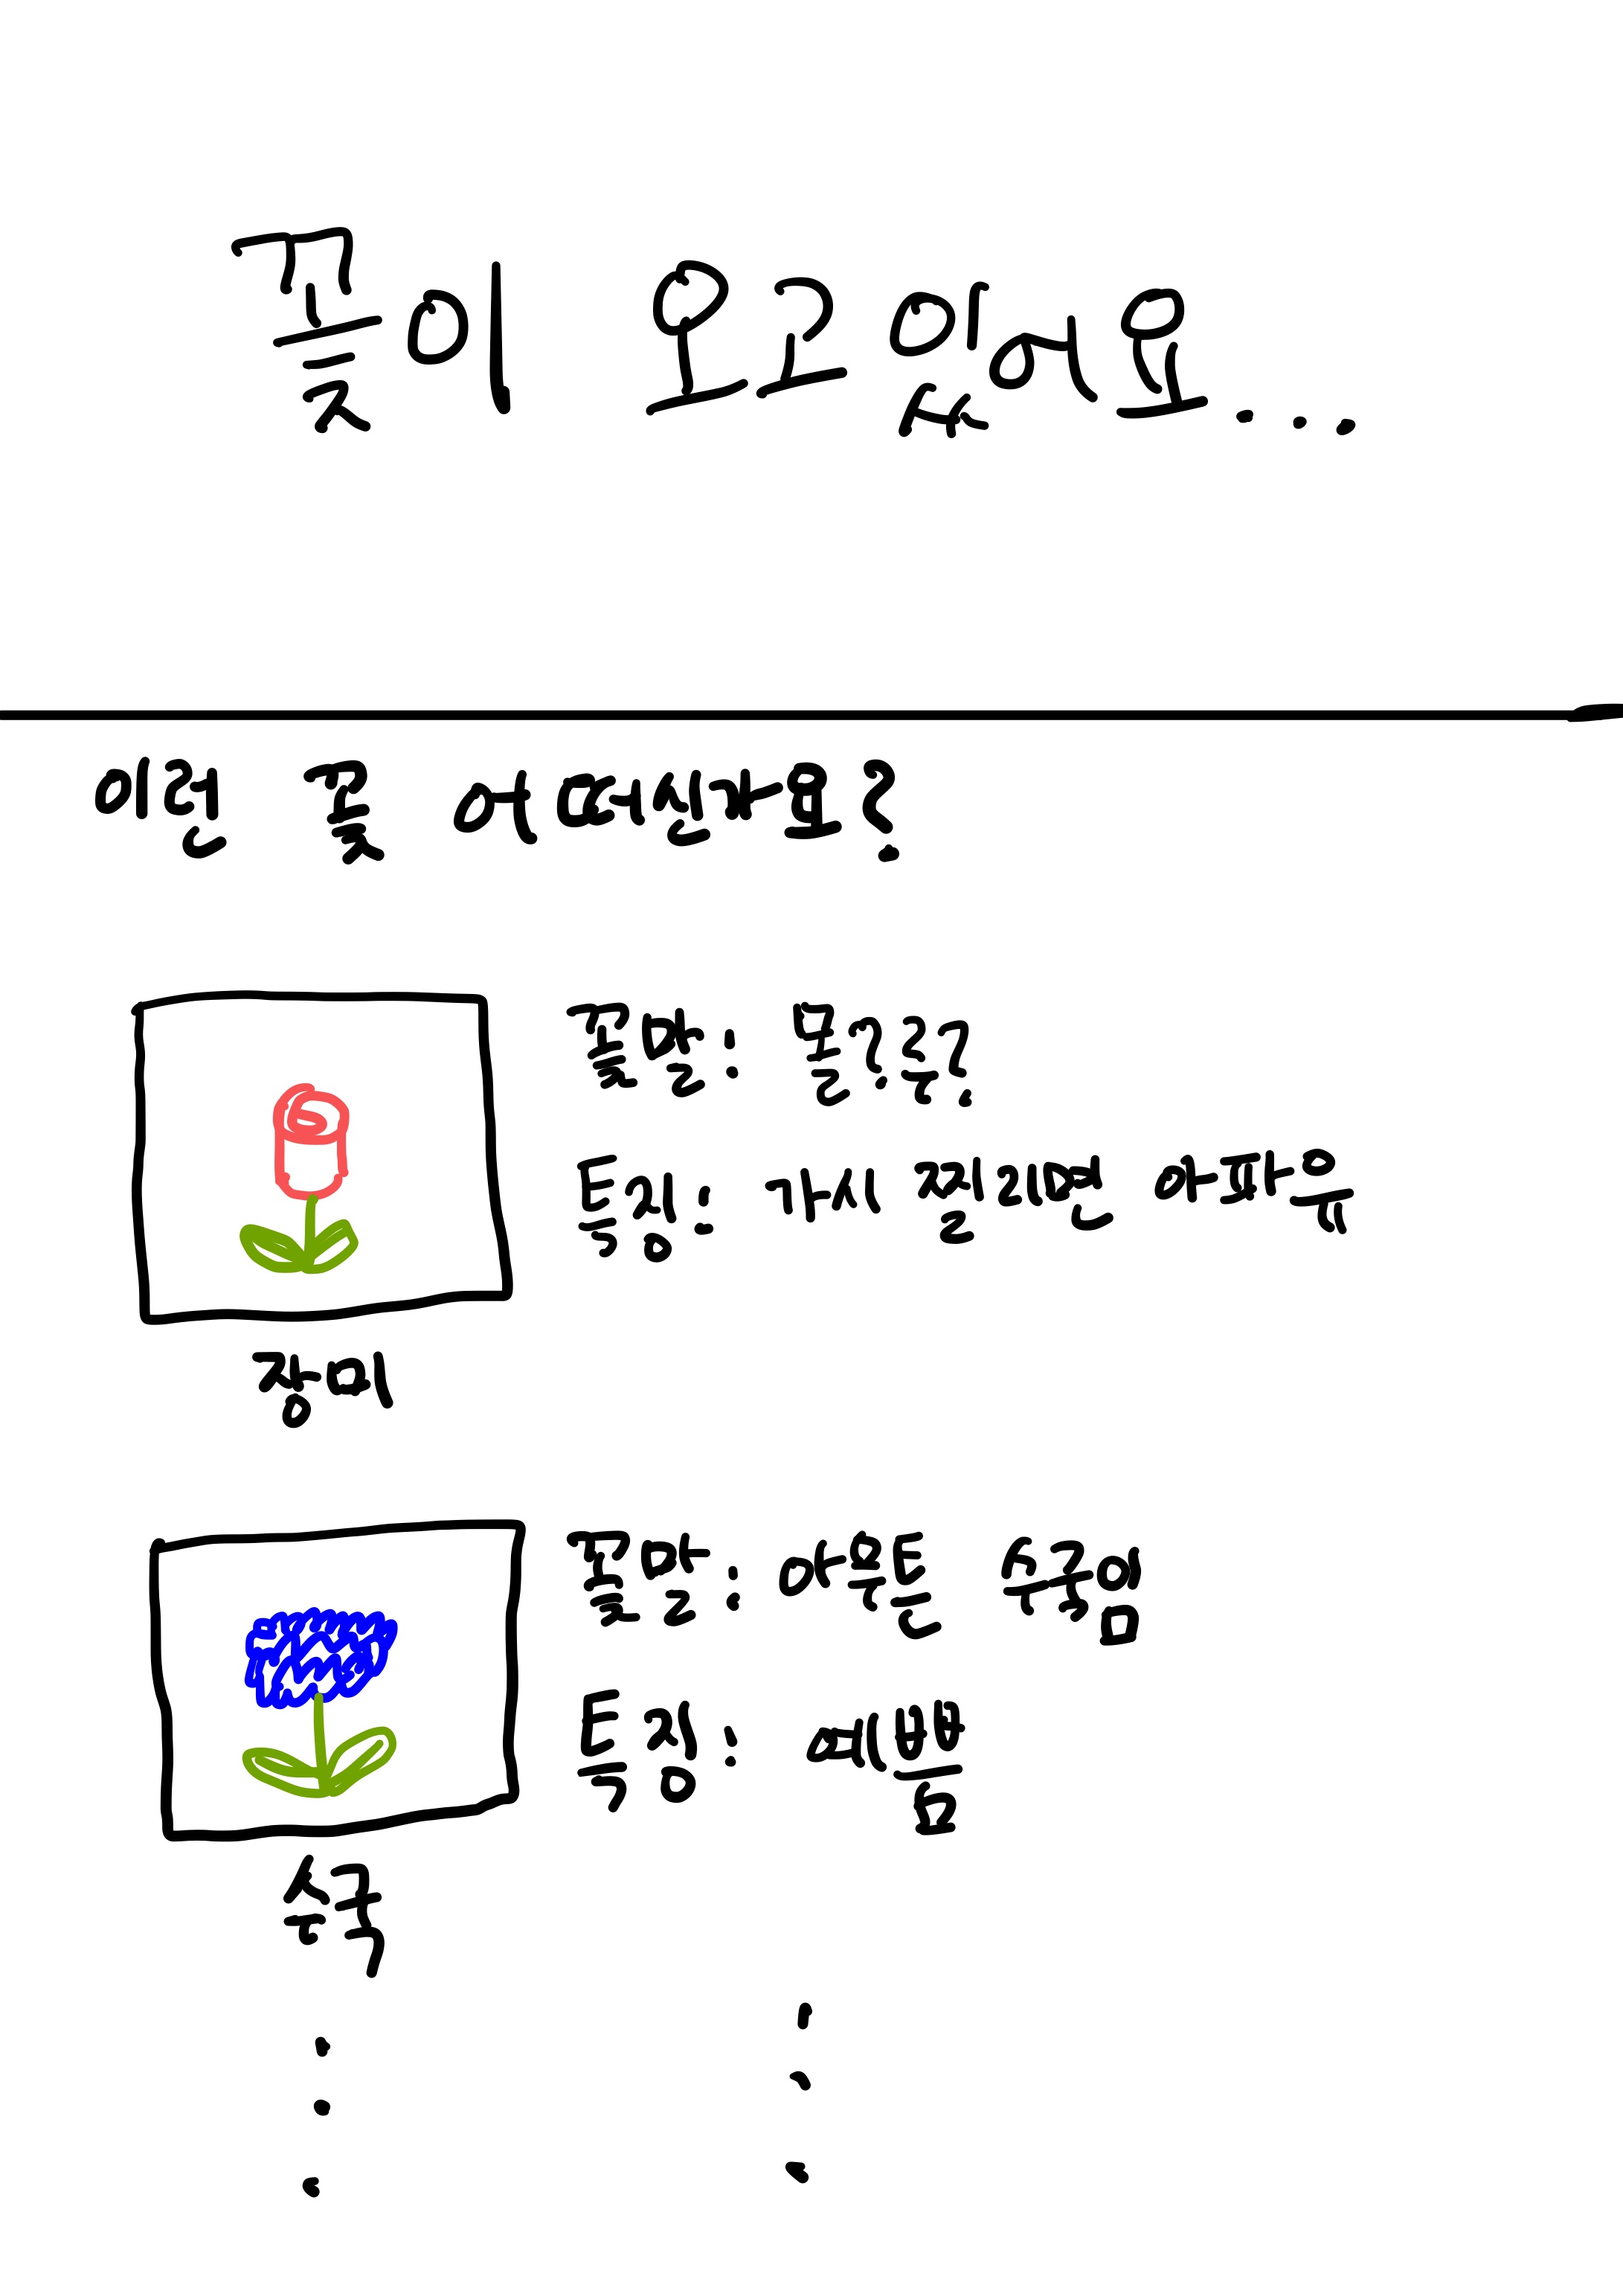 꽃이 오고 있어요...
이런 꽃 어떠신가요?
꽃말: 몰?루?
특징: 가시 찔리면 아파유
장미
꽃말: 아무튼 수국임
특징: 예쁨
수국